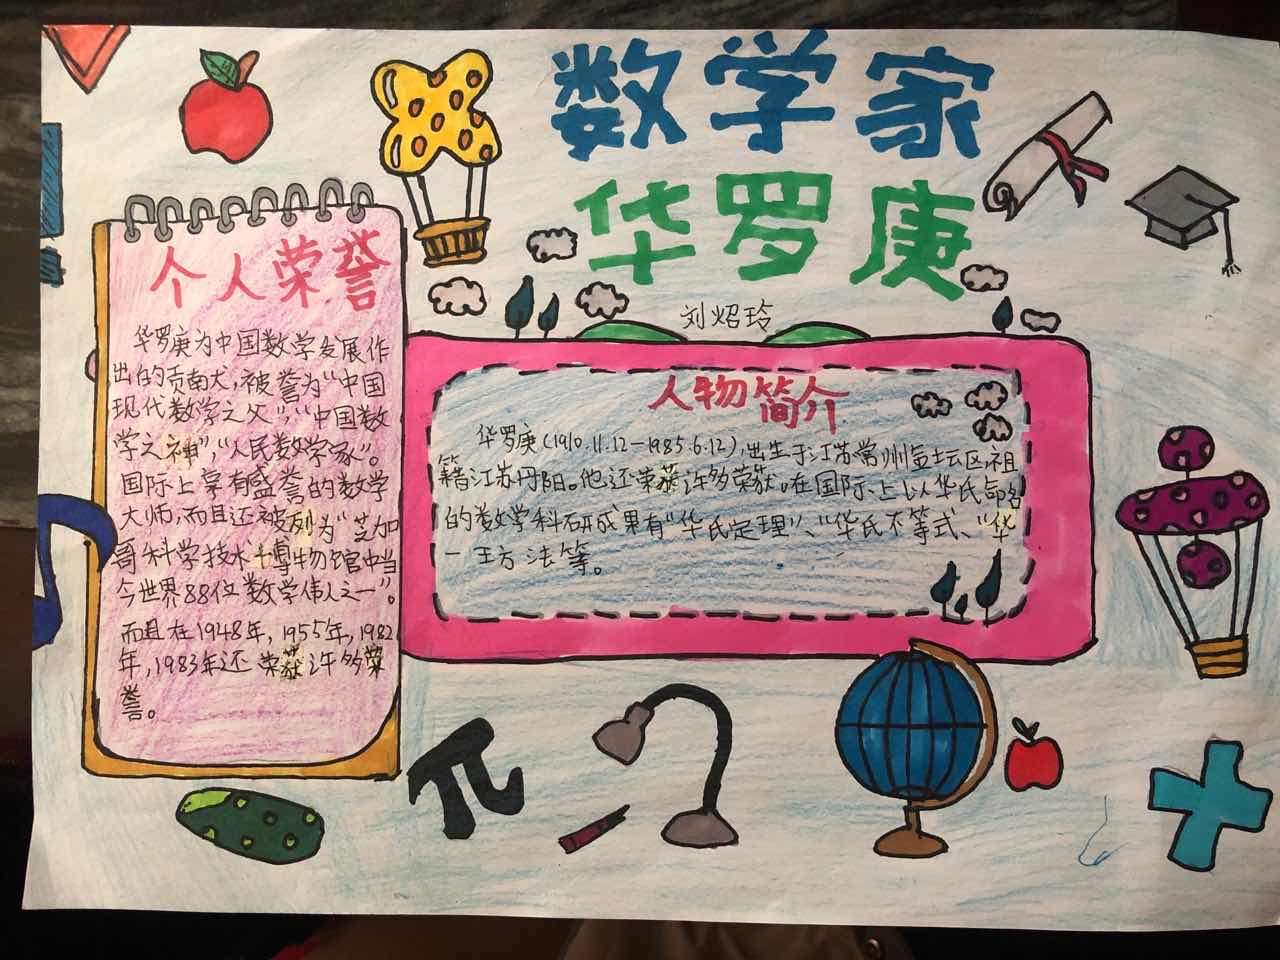 数学家
华罗庚
刘炤玲
个人荣誉
华罗庚为中国数学发展作
出的贡献大,被誉为“中国
现代数学之父”,“中国数
学之神”,“人民数学家”。
国际上享有盛誉的数学
大师,而且还被列为“芝加
哥科学技术博物馆中当
今世界88位数学伟人之一”。
而且在1948年,1955年,1982
年,1983年还荣获许多荣
誉。
人物简介
华罗庚(1910.11.12—1985.6.12),出生于江苏常州金坛区祖
籍江苏丹阳。他还荣获许多荣获。在国际上以华氏命名
的数学科研成果有“华氏定理”、“华氏不等式、“华
一王方法等。
π